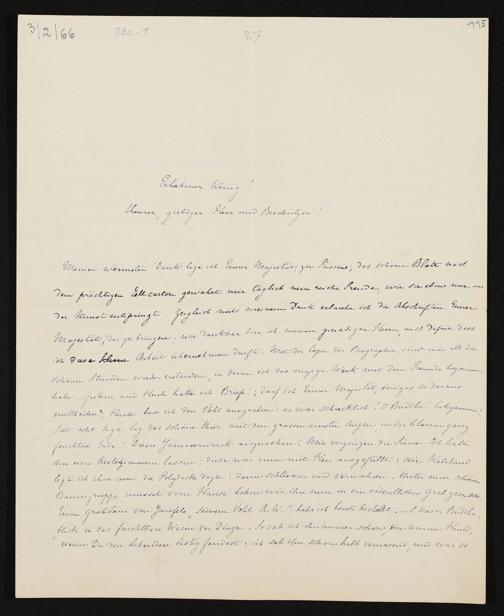 3/2/66 IBC-1 27 115
Erhabener König!
Theurer, gütiger Herr und Beschützer!
Meinen wärmsten Dank lege ich Eurer Majestät zu Füssen, das schöne Blatt nach
dem prächtigen Tell carton gewährt mir täglich neue reiche Freude, wie sie eben nur aus
der Kunst entspringt. Zugleich mit meinem Dank erlaube ich die Abschriften Eurer
Majestät, wie dankbar bin ich meinem gnädigen Herrn, auch dafür dass
ich diese kleine Arbeit übernehmen durfte. Mit der Copie der Biographie sind mir all die
schönen Stunden wieder erstanden, in denen ich das einzige Werk mit dem Freunde begonnen
habe. Gestern und Heute hatte ich Briefe; darf ich Eurer Majestät einiges daraus
mittheilen? Heute liess ich den Pohl ausgraben: es war schrecklich! O Buddha!
Seit acht Tage lag das schöne Thier mit den grossen ernsten Augen, in der
feuchten Erde! Dieses Jammerwerk anzusehen! Mir vergingen die Sinne. Ich hatte
ihm eine Kiste lassen; diese war nun mit Heu ausgefüllt: sein Halsband
legte ich ihm um, die dazu: dann schliessen und verwahren. Unter einer schönen
Baumgruppe unweit vom Hause haben wir ihn nun in ein ordentliches Grab gesenkt.
Einen Grabstein von Jurafels, "Seinem Pohl R. W." habe ich heute bestellt. — O dieser Buddha,
Blick in das furchtbare Wesen der Dinge. So sah ich ihn immer schon, den armen Hund,
wenn Du den Lebenden lustig fandest: ich sah ihn schon halb verwesend, und war so